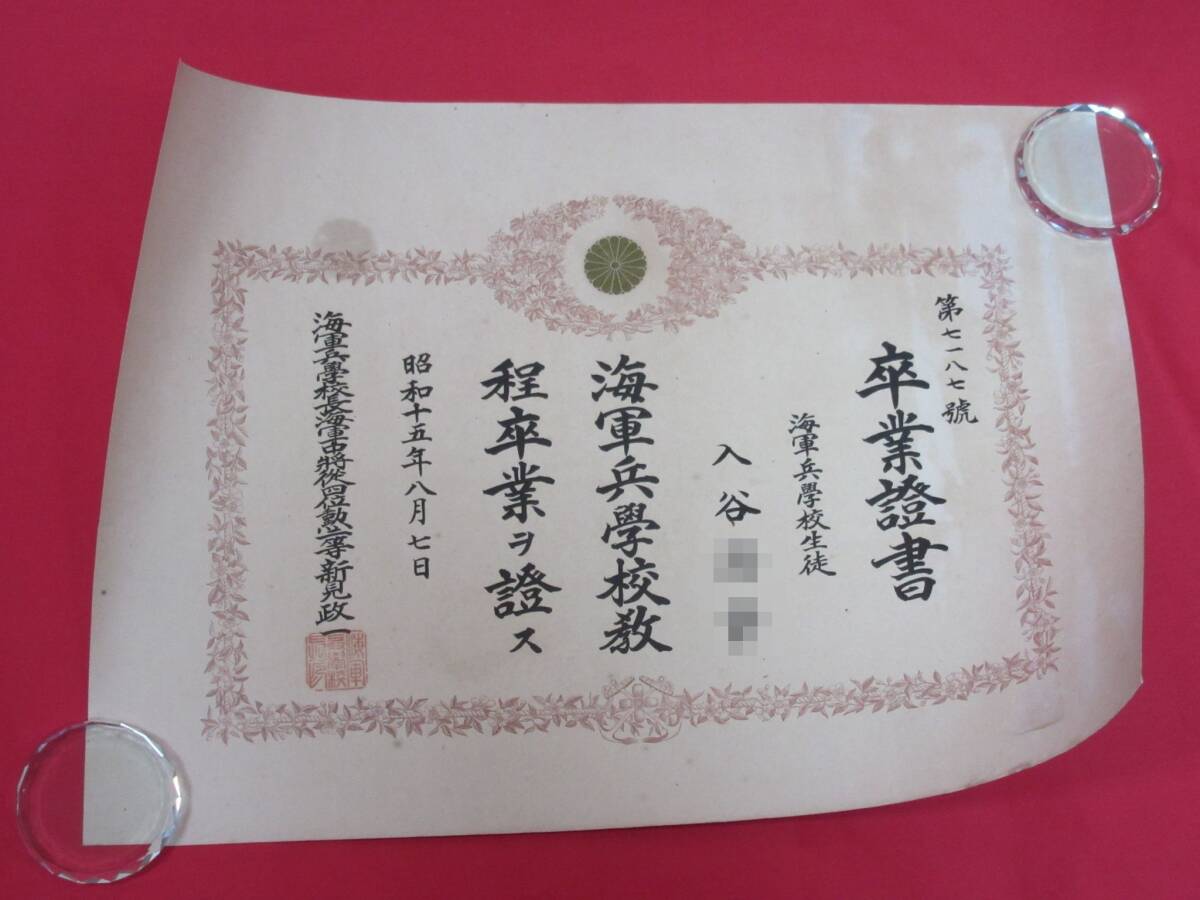 第七一八七號
卒業證書
海軍兵學校生徒
入谷
海軍兵學校教
程卒業ヲ證ス
昭和十五年八月七日
海軍兵學校長海軍中將從四位勲二等新見政一